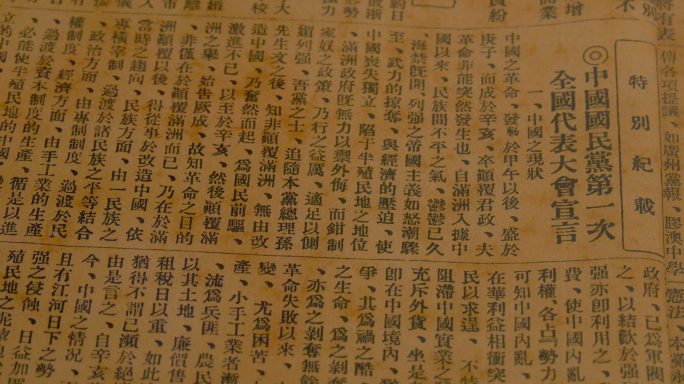 傳各項提議、如廣州黨報、膠澳中學
特別紀載
◎中國國民黨第一次
全國代表大會宣言
一、中國之現狀
中國之革命、發軔於甲午以後、盛於
庚子、而成於辛亥、卒顛覆君政、夫
革命非能突然發生也、自滿洲入據中
國以來、民族間不平之氣、鬱鬱已久
、海禁旣開、列强之帝國主義如怒潮驟
至、武力的掠奪、與經濟的壓迫、使
中國喪失獨立、陷于半殖民地之地位
、滿洲政府旣無力以禦外侮、而鉗制
家奴之政策、乃行之益厲、適足以側
媚列强、吾黨之士、追隨本黨總理孫
先生文之後、知非顛覆滿洲、無由改
造中國、乃奮然而起、爲國民前驅、
激進不已、以至於辛亥、然後顛覆滿
洲之舉、始告厥成、故知革命之目的
、非僅在於顛覆滿洲而已、乃在於滿
洲顛覆以後、得從事於改造中國、依
當時之趨向、民族方面、由一民族之
專橫宰制、過渡於諸民族之平等結合
、政治方面、由專制制度、過渡於民
權制度、經濟方面、由手工業的生產
、過渡於資本制度的生產、循是以進
、必能使半殖民地的中國
政府、已爲軍閥
之、以結歡於强
强亦卽利用之、
費、使中國內亂
利權、各占勢力
可知中國內亂
在華利益相衝突
民以求逞、不
阻滯中國實業之
充斥外貨、坐是
卽在中國境內、
爭、其爲禍之酷
之生命、爲之
亦爲之剝奪無餘
革命失敗以來、
變、尤爲困苦、
產、小手工業者漸
、流爲兵匪、農民
以其土地、廉價售
租稅日以重、如此
猶得不謂已瀕於絕
由是言之、自辛亥
今、中國之情況、
且有江河日下之勢
强之侵蝕、日益加
殖民地之泥